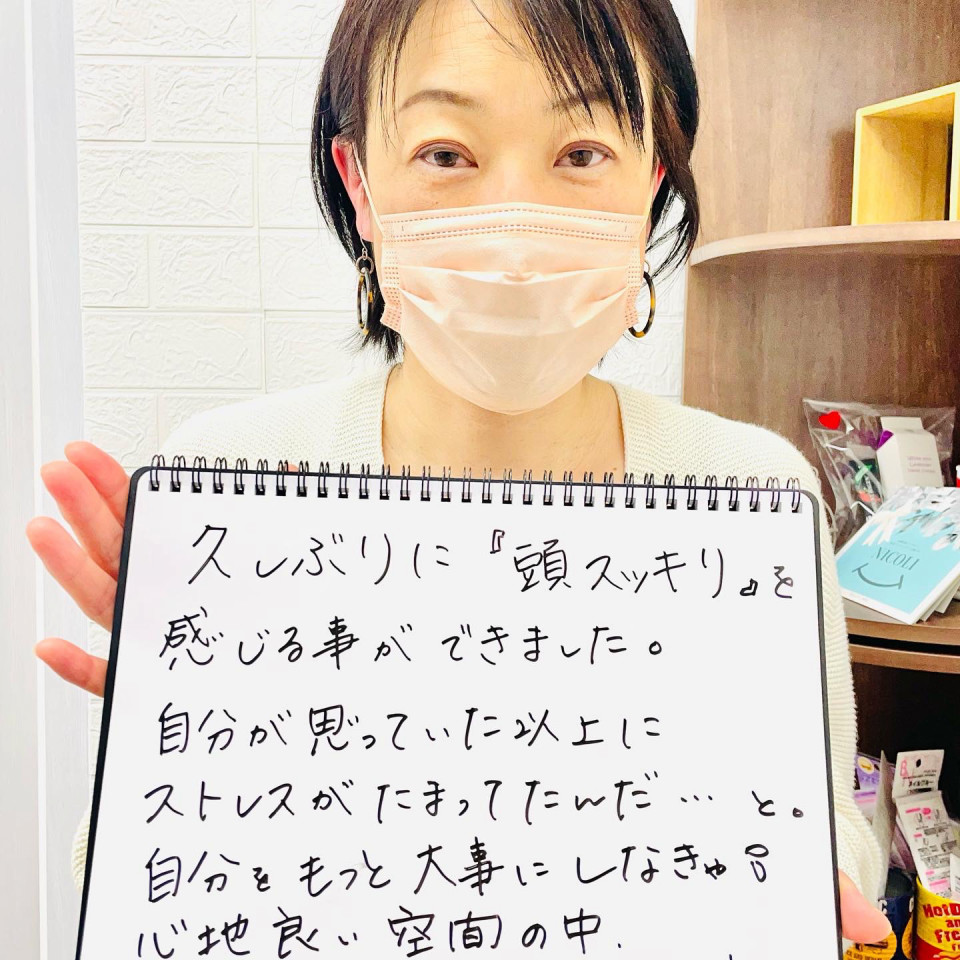 久しぶりに『頭スッキリ』を
感じる事ができました。
自分が思っていた以上に
ストレスがたまってたんだ… と。
自分をもっと大事にしなきゃ!
心地良い空間の中、
NICOLI